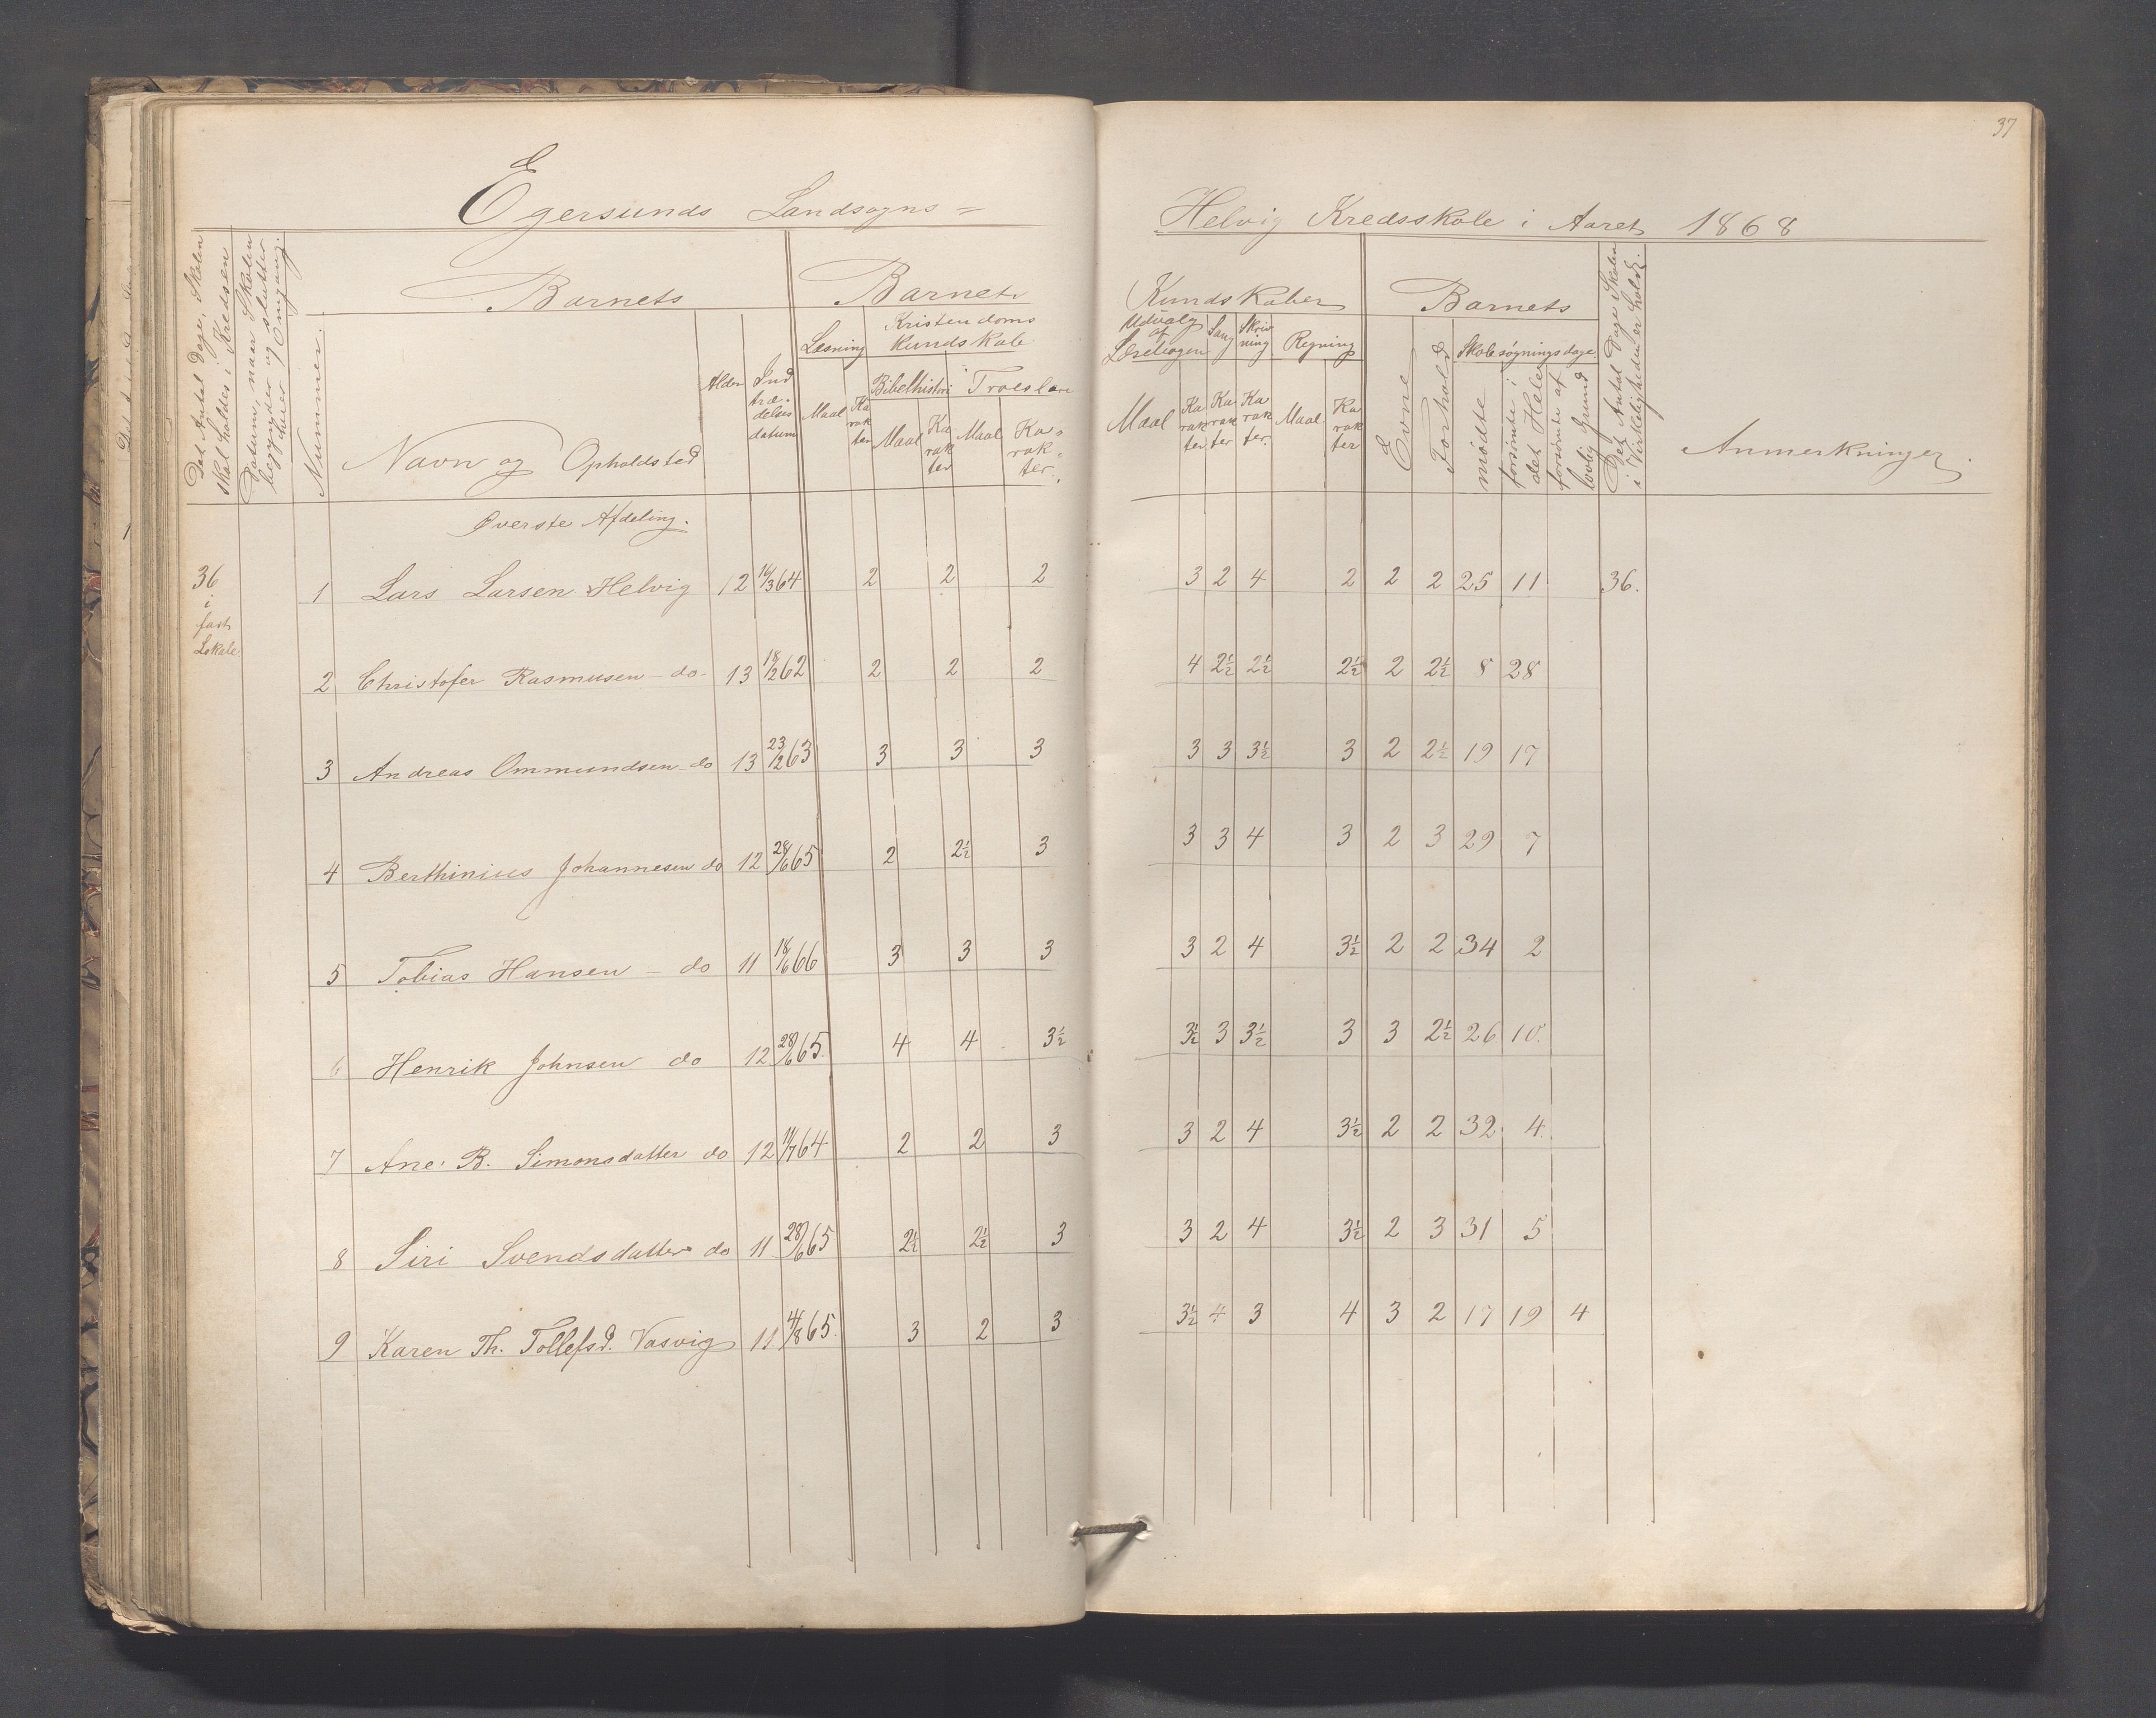 37
Egersunds Landsogns =
Helvig Kredsskole i Aaret 1868
Det Antal Dage, Skolen skal holdes i Kredsen
Datum, naar Skolen begynder og slutter hver Omgang.
Nummer.
Barnets
Navn og Opholdsted
Alder
Indtrædelsesdatum
Barnets
Læsning
Maal
Karakter
Kristendomskundskab
Bibelhistori
Maal
Karakter
Troeslære
Maal
Karakter.
Kundskaber
Udvalg af Læsebogen
Maal
Karakter
Sang
Karakter
Skrivning
Karakter.
Regning
Maal
Karakter
Barnets
Evne
Forhold
Skolesøgningsdage
mødte
forsømte i det Hele
forsømte af lovlig Grund
Det Antal Dage Skolen i Virkeligheden er holdt.
Anmerkninger.
Øverste Afdeling.
36 i fast Lokale
1 Lars Larsen Helvig 12 16/3 64 2 2 2 3 2 4 2 2 2 25 11 36.
2 Christofer Rasmusen - do - 13 18/2 62 2 2 2 4 2½ 2½ 2½ 2 2½ 8 28
3 Andreas Ommundsen - do 13 23/2 63 3 3 3 3 3 3½ 3 2 2½ 19 17
4 Berthinius Johannesen do 12 28/6 65 2 2½ 3 3 3 4 3 2 3 29 7
5 Tobias Hansen - do 11 18/6 66 3 3 3 3 2 4 3½ 2 2 34 2
6 Henrik Johnsen do 12 28/6 65. 4 4 3½ 3½ 3 3½ 3 3 2½ 26 10.
7 Ane B. Simonsdatter do 12 64 2 2 3 3 2 4 3½ 2 2 32 4.
8 Siri Svendsdatter do 11 28/6 65 2½ 2½ 3 3 2 4 3½ 2 3 31 5
9 Karen Th. Tollefsd. Vasvig 11 65. 3 2 3 3½ 4 3 4 3 2 17 19 4